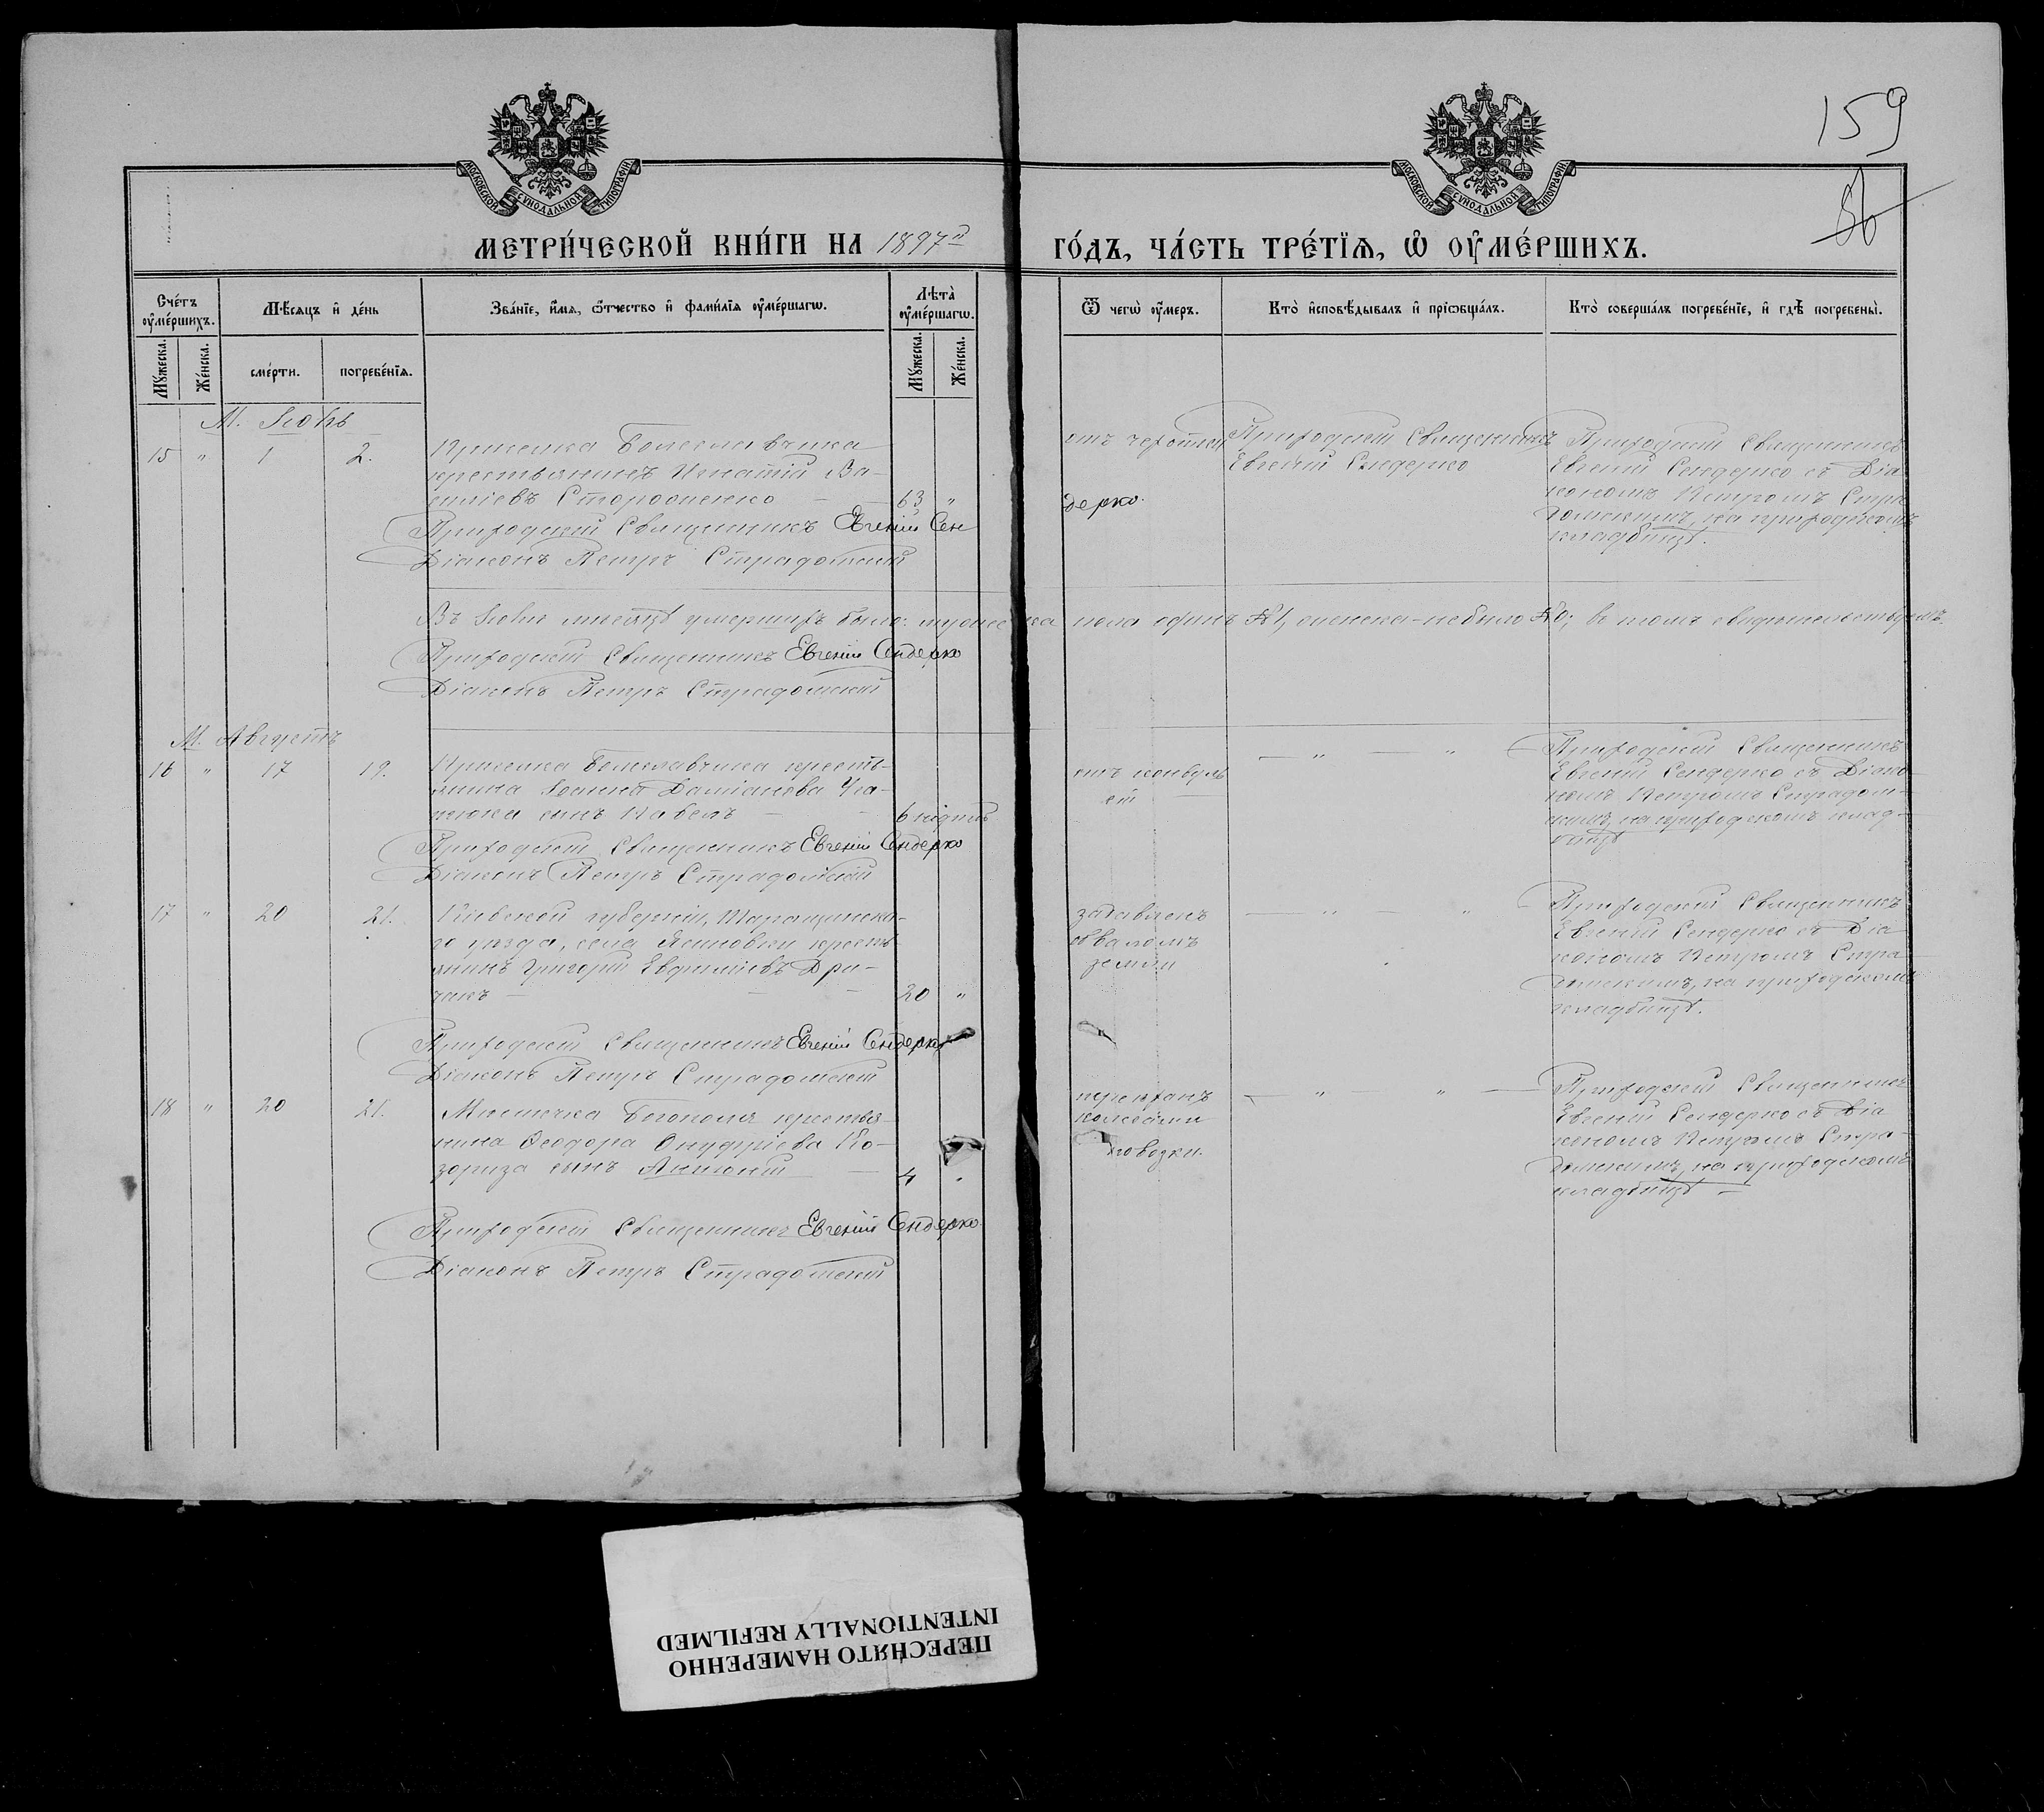 159
56
МОСКОВСКОЙ СУНОДАЛЬНОЙ ТИПОГРАФІИ
МОСКОВСКОЙ СУНОДАЛЬНОЙ ТИПОГРАФІИ
МЕТРИ́ЧЕСКОЙ КНИ́ГИ НА 1897й ГО́ДЪ, ЧА́СТЬ ТРЕ́ТІЯ, Ѡ ОУМЕ́РШИХЪ.
Сче́тъ оуме́ршихъ.
Мѣсяцъ и де́нь
Зва́ніе, и́мя, ѻ́тчество и фами́лія оуме́ршагѡ.
Лѣта̀ оуме́ршагѡ.
Ѿ чегѡ̀ оу́меръ.
Кто̀ исповѣдывалъ и пріѡбща́лъ.
Кто̀ соверша́лъ погребе́ніе, и гдѣ̀ погребены̀.
Му́жеска.
Же́нска.
сме́рти.
погребе́нія.
Му́жеска.
Же́нска.
М. Іюль
15 " 1 2.
Приселка Болеславчика
крестьянинъ Игнатій Ва-
силіевъ Сторо
63 "
Приходскій Священникъ Евгеній Сендерко
Діаконъ Петръ Страдомскій
Приходскій Священникъ
Евгеній Сендерко
Приходскій Священникъ
Евгеній Сендерко съ Діа-
кономъ Петромъ Стра-
домскимъ, на приходскомъ
кладбищѣ.
Въ Іюлѣ мѣсяцѣ умершихъ было: мужеска пола одинъ №1, женска - не было №0; въ томъ свидѣтельствуемъ
Приходскій Священникъ Евгеній Сендерко
Діаконъ Петръ Страдомскій
М. Августъ
16 " 17 19.
Приселка Болеславчика крестья-
нина Іоанна Даміанова
сынъ Павелъ
6
Приходскій Священникъ Евгеній Сендерко
Діаконъ Петръ Страдомскій
отъ конвуль-
сій
— " — "
Приходскій Священникъ
Евгеній Сендерко съ Діако-
номъ Петромъ Страдом-
скимъ, на приходскомъ клад-
бищѣ
17 " 20 21.
Кіевской губерніи, Таращанска-
го уѣзда, села Ясиновки крестья-
нинъ Григорій Евфиміевъ Дри-
чакъ
20 "
Приходскій Священникъ Евгеній Сендерко
Діаконъ Петръ Страдомскій
задавленъ
обваломъ
земли
— " — "
Приходскій Священникъ
Евгеній Сендерко съ Діа-
кономъ Петромъ Стра-
домскимъ, на приходскомъ
кладбищѣ.
18 " 20 21.
Мѣстечка Богополя крестья-
нина Ѳеодора Онуфріева Ко-
зориза сынъ Антоній
4 "
Приходскій Священникъ Евгеній Сендерко
Діаконъ Петръ Страдомскій
переѣханъ
колесами
повозки.
— " — "
Приходскій Священникъ
Евгеній Сендерко съ Діа-
кономъ Петромъ Стра-
домскимъ, на приходскомъ
кладбищѣ
ПЕРЕСНЯТО НАМЕРЕННО
INTENTIONALLY REFILMED